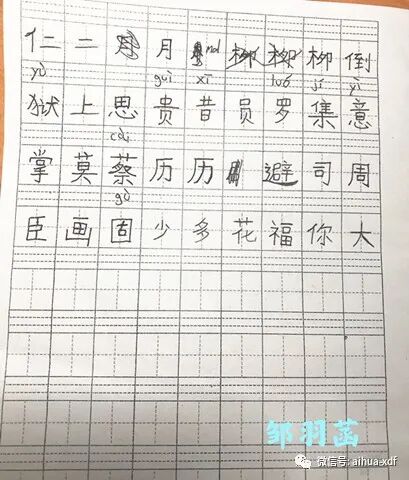 仁 二 月 月 柳 柳 柳 倒
yù guì xī luó jí yì
狱 上 思 贵 昔 员 罗 集 意
cài
掌 莫 蔡 历 历 避 司 周
gù
臣 画 固 少 多 花 福 你 大
邹羽茜
微信号: aihua-xdf